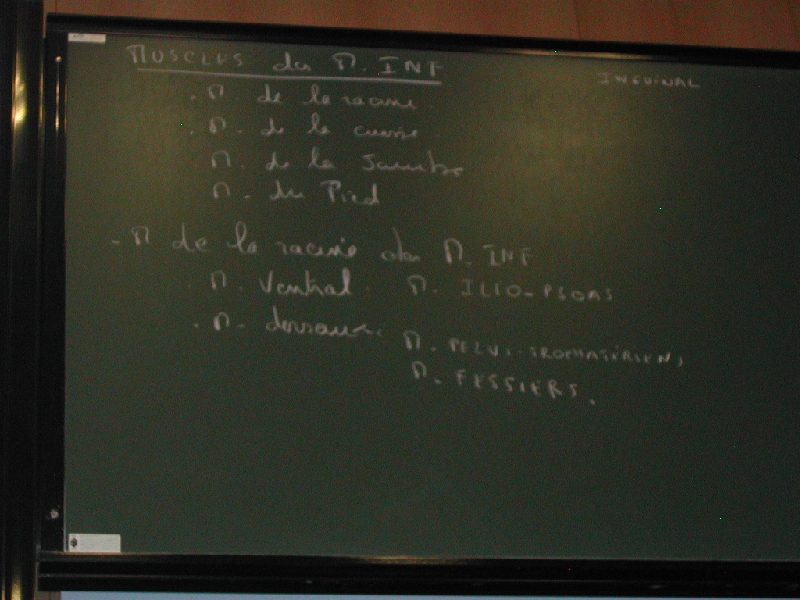 MUSCLES du M. INF
INGUINAL
. M. de la racine
. M. de la cuisse
. M. de la Jambe
M. du Pied
- M de la racine du M. INF
. M. Ventral. M. ILIO-PSOAS
. M. dorsaux.
M. PELVI-TROCHATÉRIENS
M. FESSIERS.